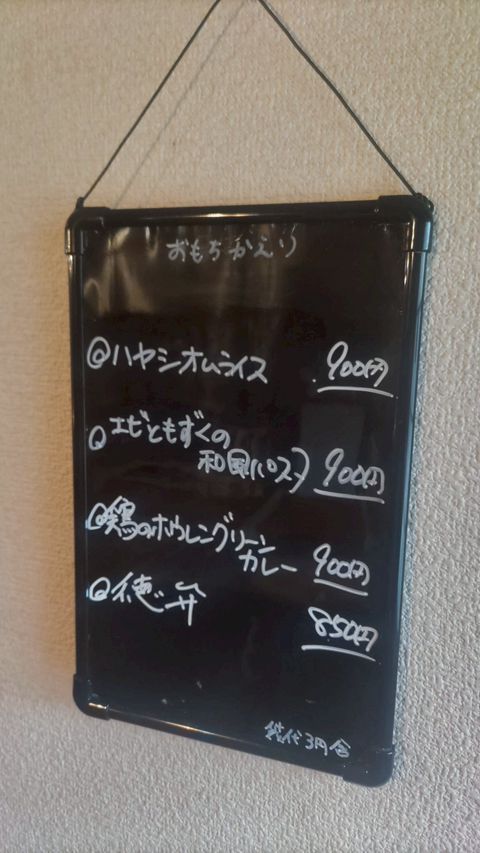 おもちかえり
◎ハヤシオムライス 900円
◎エビともずくの
和風パスタ 900円
◎鶏のホウレングリーン
カレー 900円
◎徳弁 850円
袋代3円含